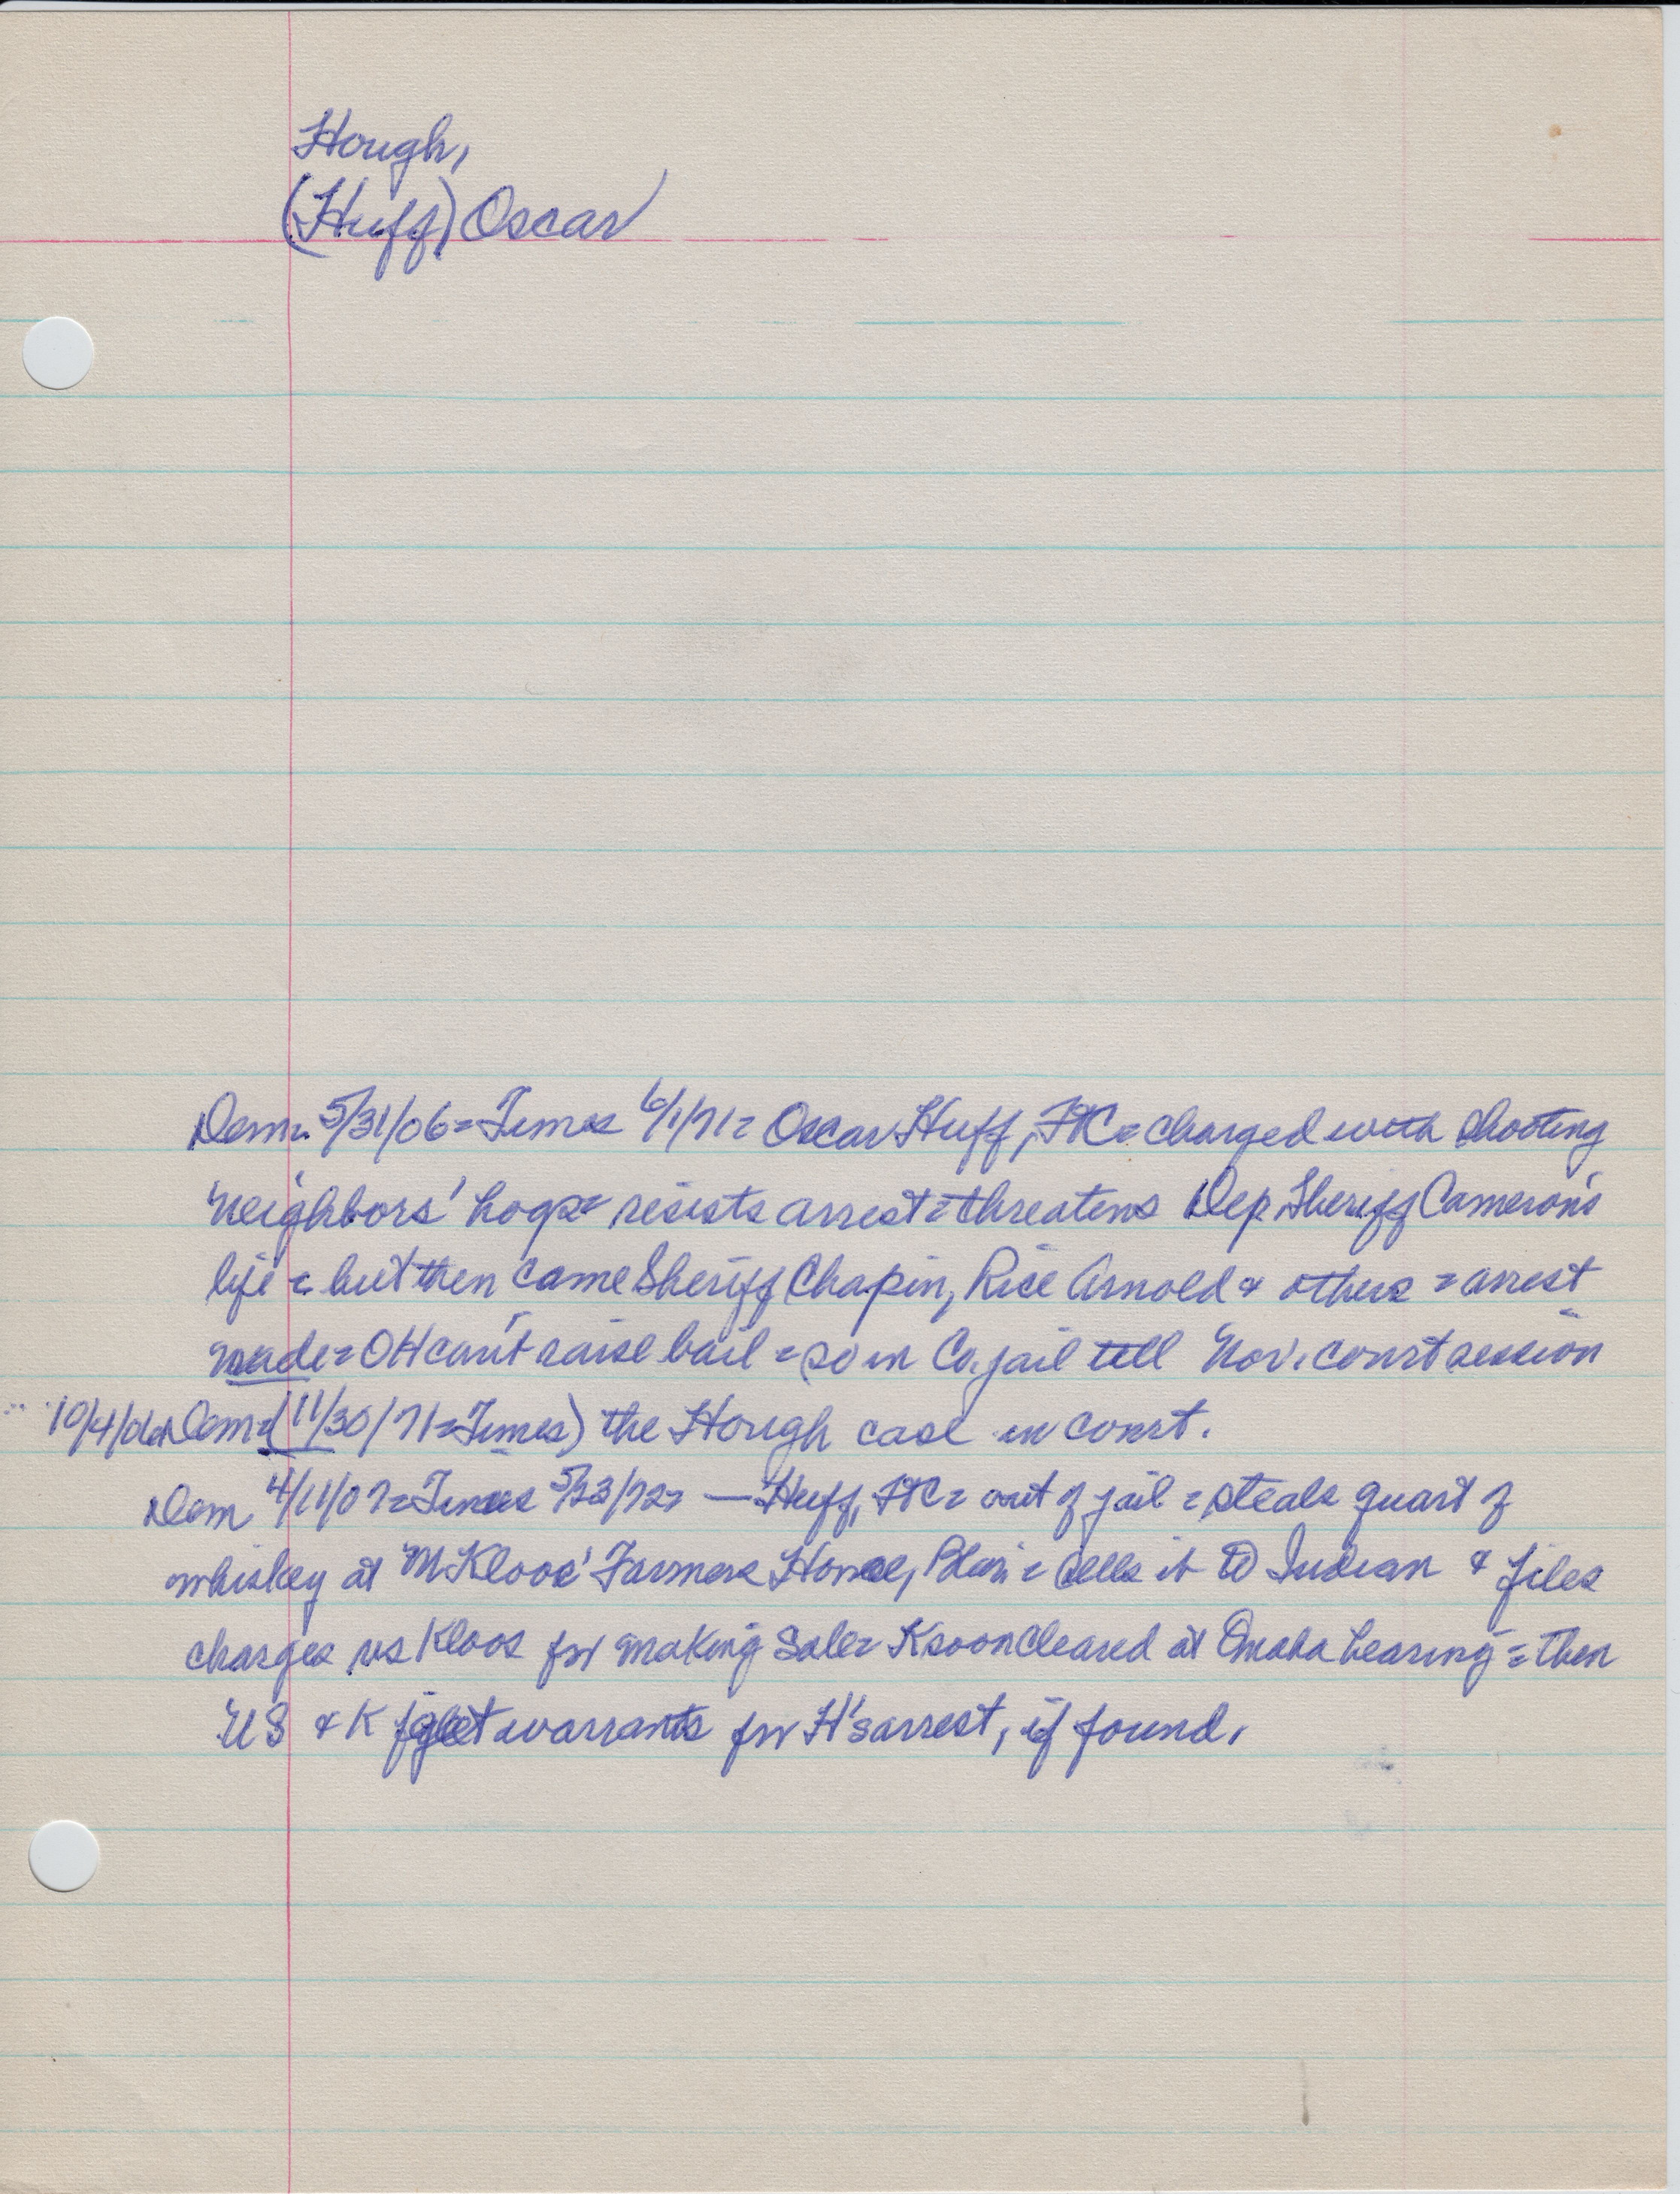 Hough,
(Huff) Oscar
Dem. 5/31/06 = Times 6/1/71 = Oscar Huff, FtC = charged with shooting
neighbors' hogs = resists arrest = threatens Dep. Sheriff Cameron's
life = but then came Sheriff Chapin, Rice Arnold & others = arrest
made = OH can't raise bail = so in Co. jail till Nov. court session
10/4/06 Dem = (11/30/71 = Times) the Hough case in court.
Dem 4/11/07 = Times 5/23/72 = — Huff, FtC = out of jail = steals quart of
whiskey at M Kloos' Farmers House, Blair = sells it to Indian & files
charges vs Kloos for making sale = K soon cleared at Omaha hearing = then
US & K get warrants for H's arrest, if found.